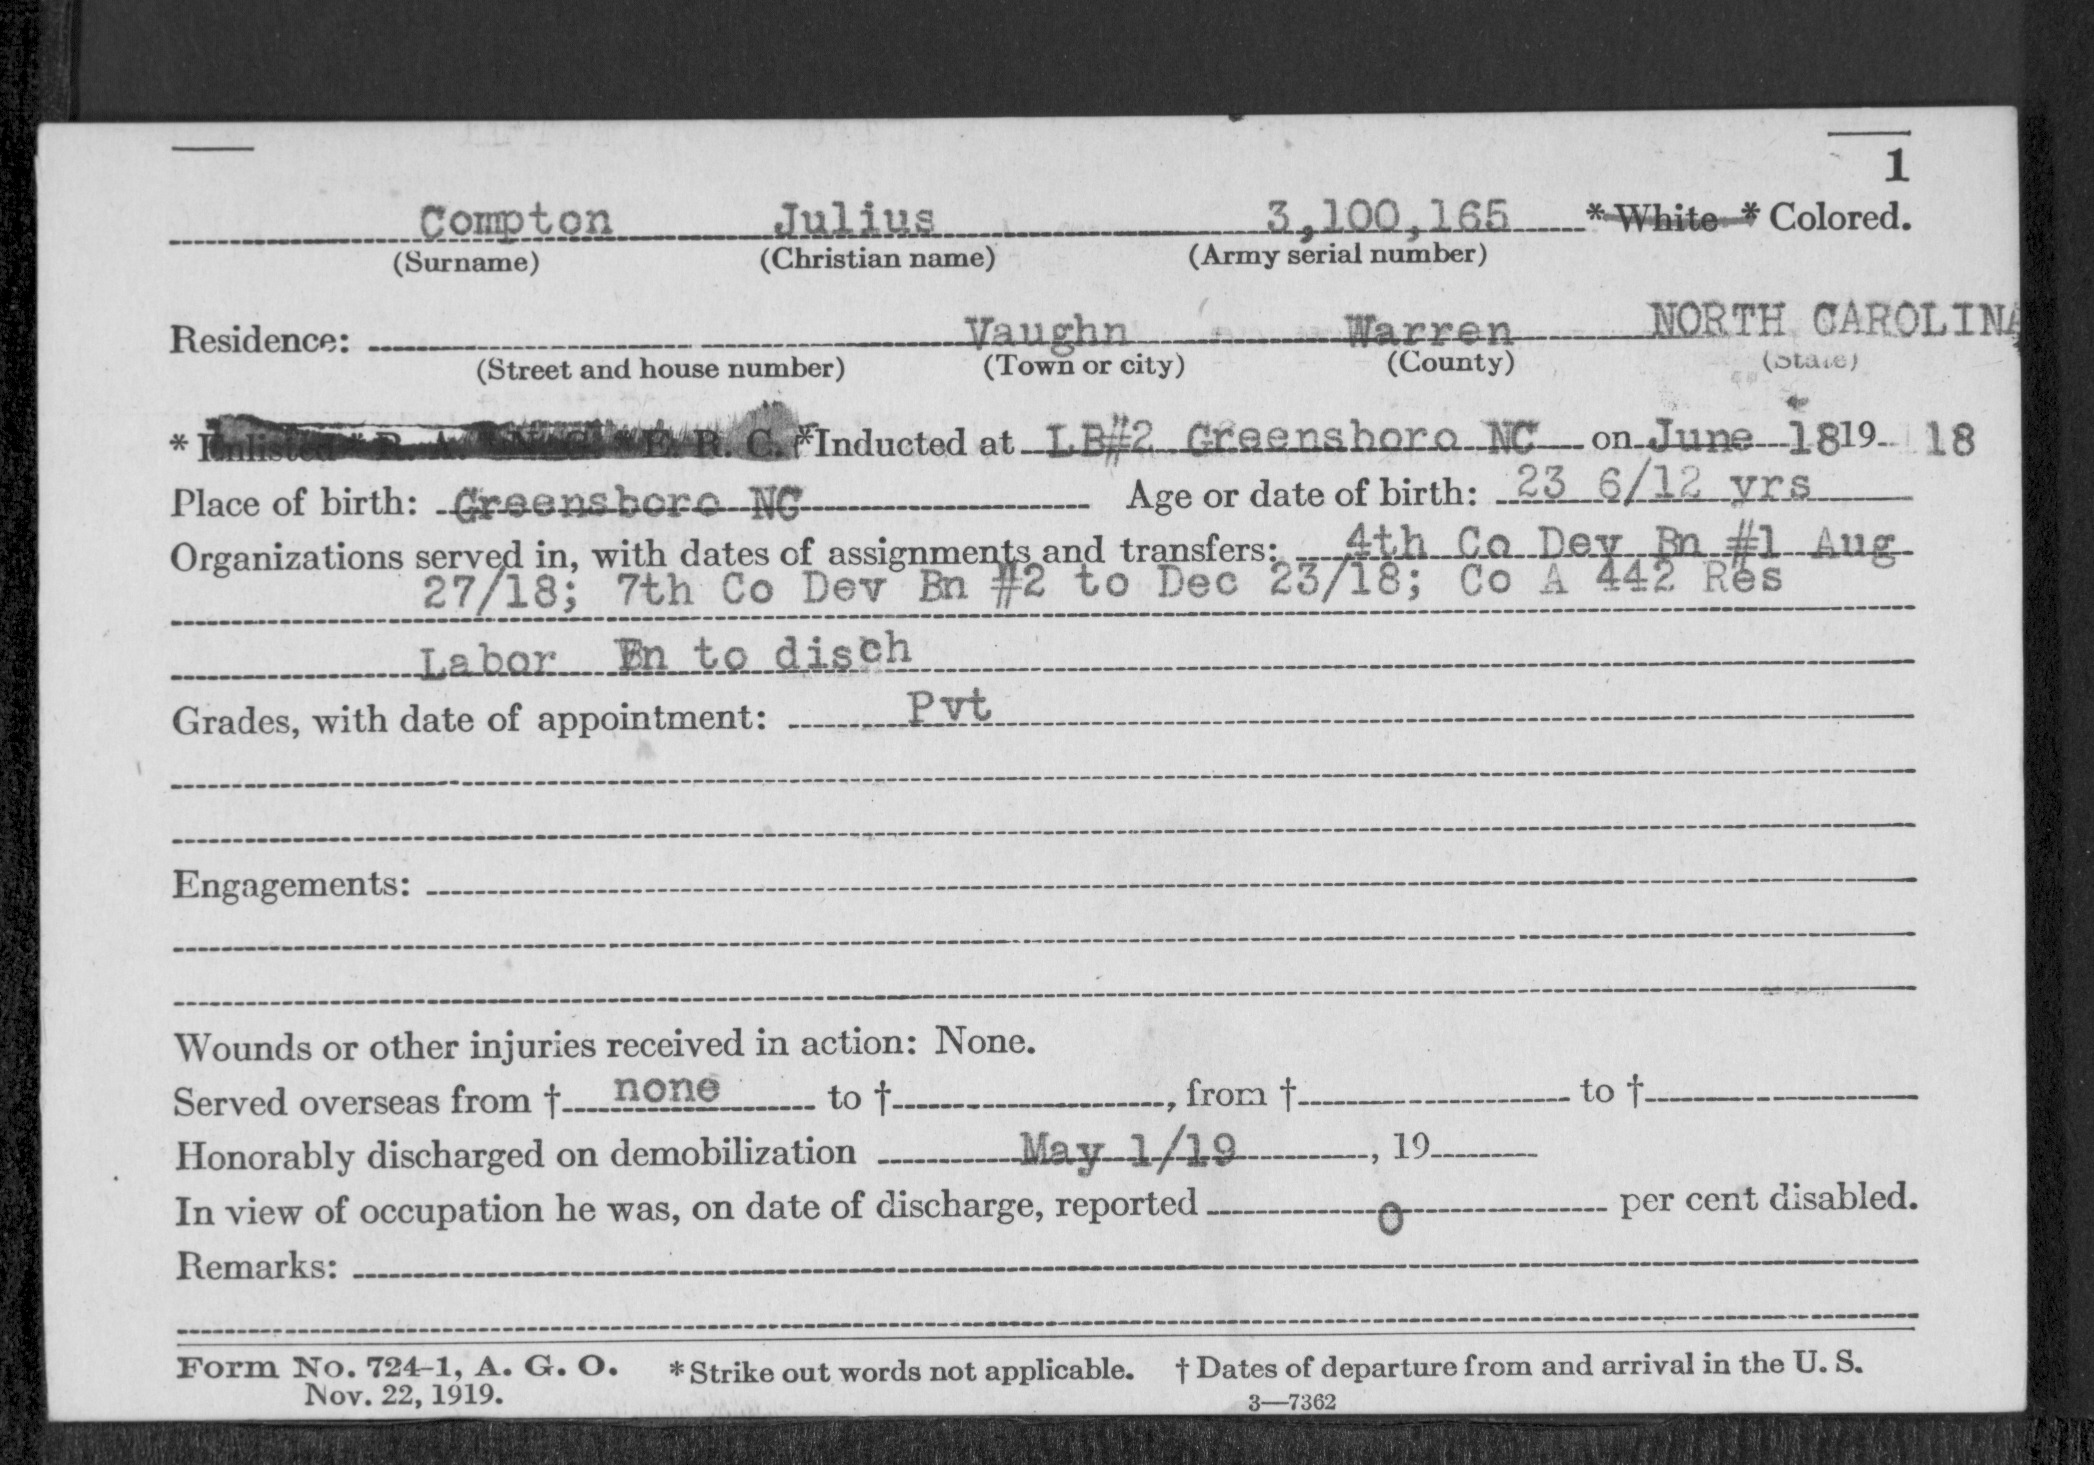 1
Compton Julius 3,100,165 * White * Colored.
(Surname) (Christian name) (Army serial number)
Residence: Vaughn Warren NORTH CAROLINA
(Street and house number) (Town or city) (County) (State)
* Enlisted * R. A. * N. G. * E. R. C. *Inducted at LB#2 Greensboro NC on June 18 19 18
Place of birth: Greensboro NC Age or date of birth: 23 6/12 yrs
Organizations served in, with dates of assignments and transfers: 4th Co Dev Bn #1 Aug
27/18; 7th Co Dev Bn #2 to Dec 23/18; Co A 442 Res
Labor Bn to disch
Grades, with date of appointment: Pvt
Engagements:
Wounds or other injuries received in action: None.
Served overseas from † none to †, from † to †
Honorably discharged on demobilization May 1/19, 19
In view of occupation he was, on date of discharge, reported 0 per cent disabled.
Remarks:
Form No. 724-1, A. G. O. * Strike out words not applicable. † Dates of departure from and arrival in the U. S.
Nov. 22, 1919. 3—7362